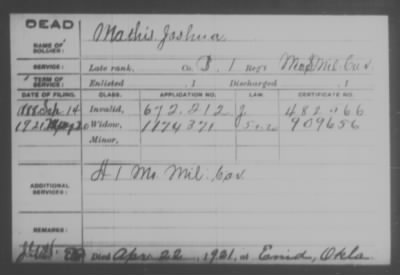 DEAD
NAME OF SOLDIER: Mathis, Joshua
SERVICE: Late rank, Co. B, 1 Reg't Mo S Mil. Cav.
TERM OF SERVICE: Enlisted , 1 Discharged , 1
DATE OF FILING. CLASS. APPLICATION NO. LAW. CERTIFICATE NO.
1888 Feb. 14 Invalid, 672.212 J 482.266
1921 May 20 Widow, 1174371 5-1-20 909656
Minor,
ADDITIONAL SERVICES: H 1 Mo. Mil. Cav
REMARKS:
Died Apr 22, 1921, at Enid, Okla.